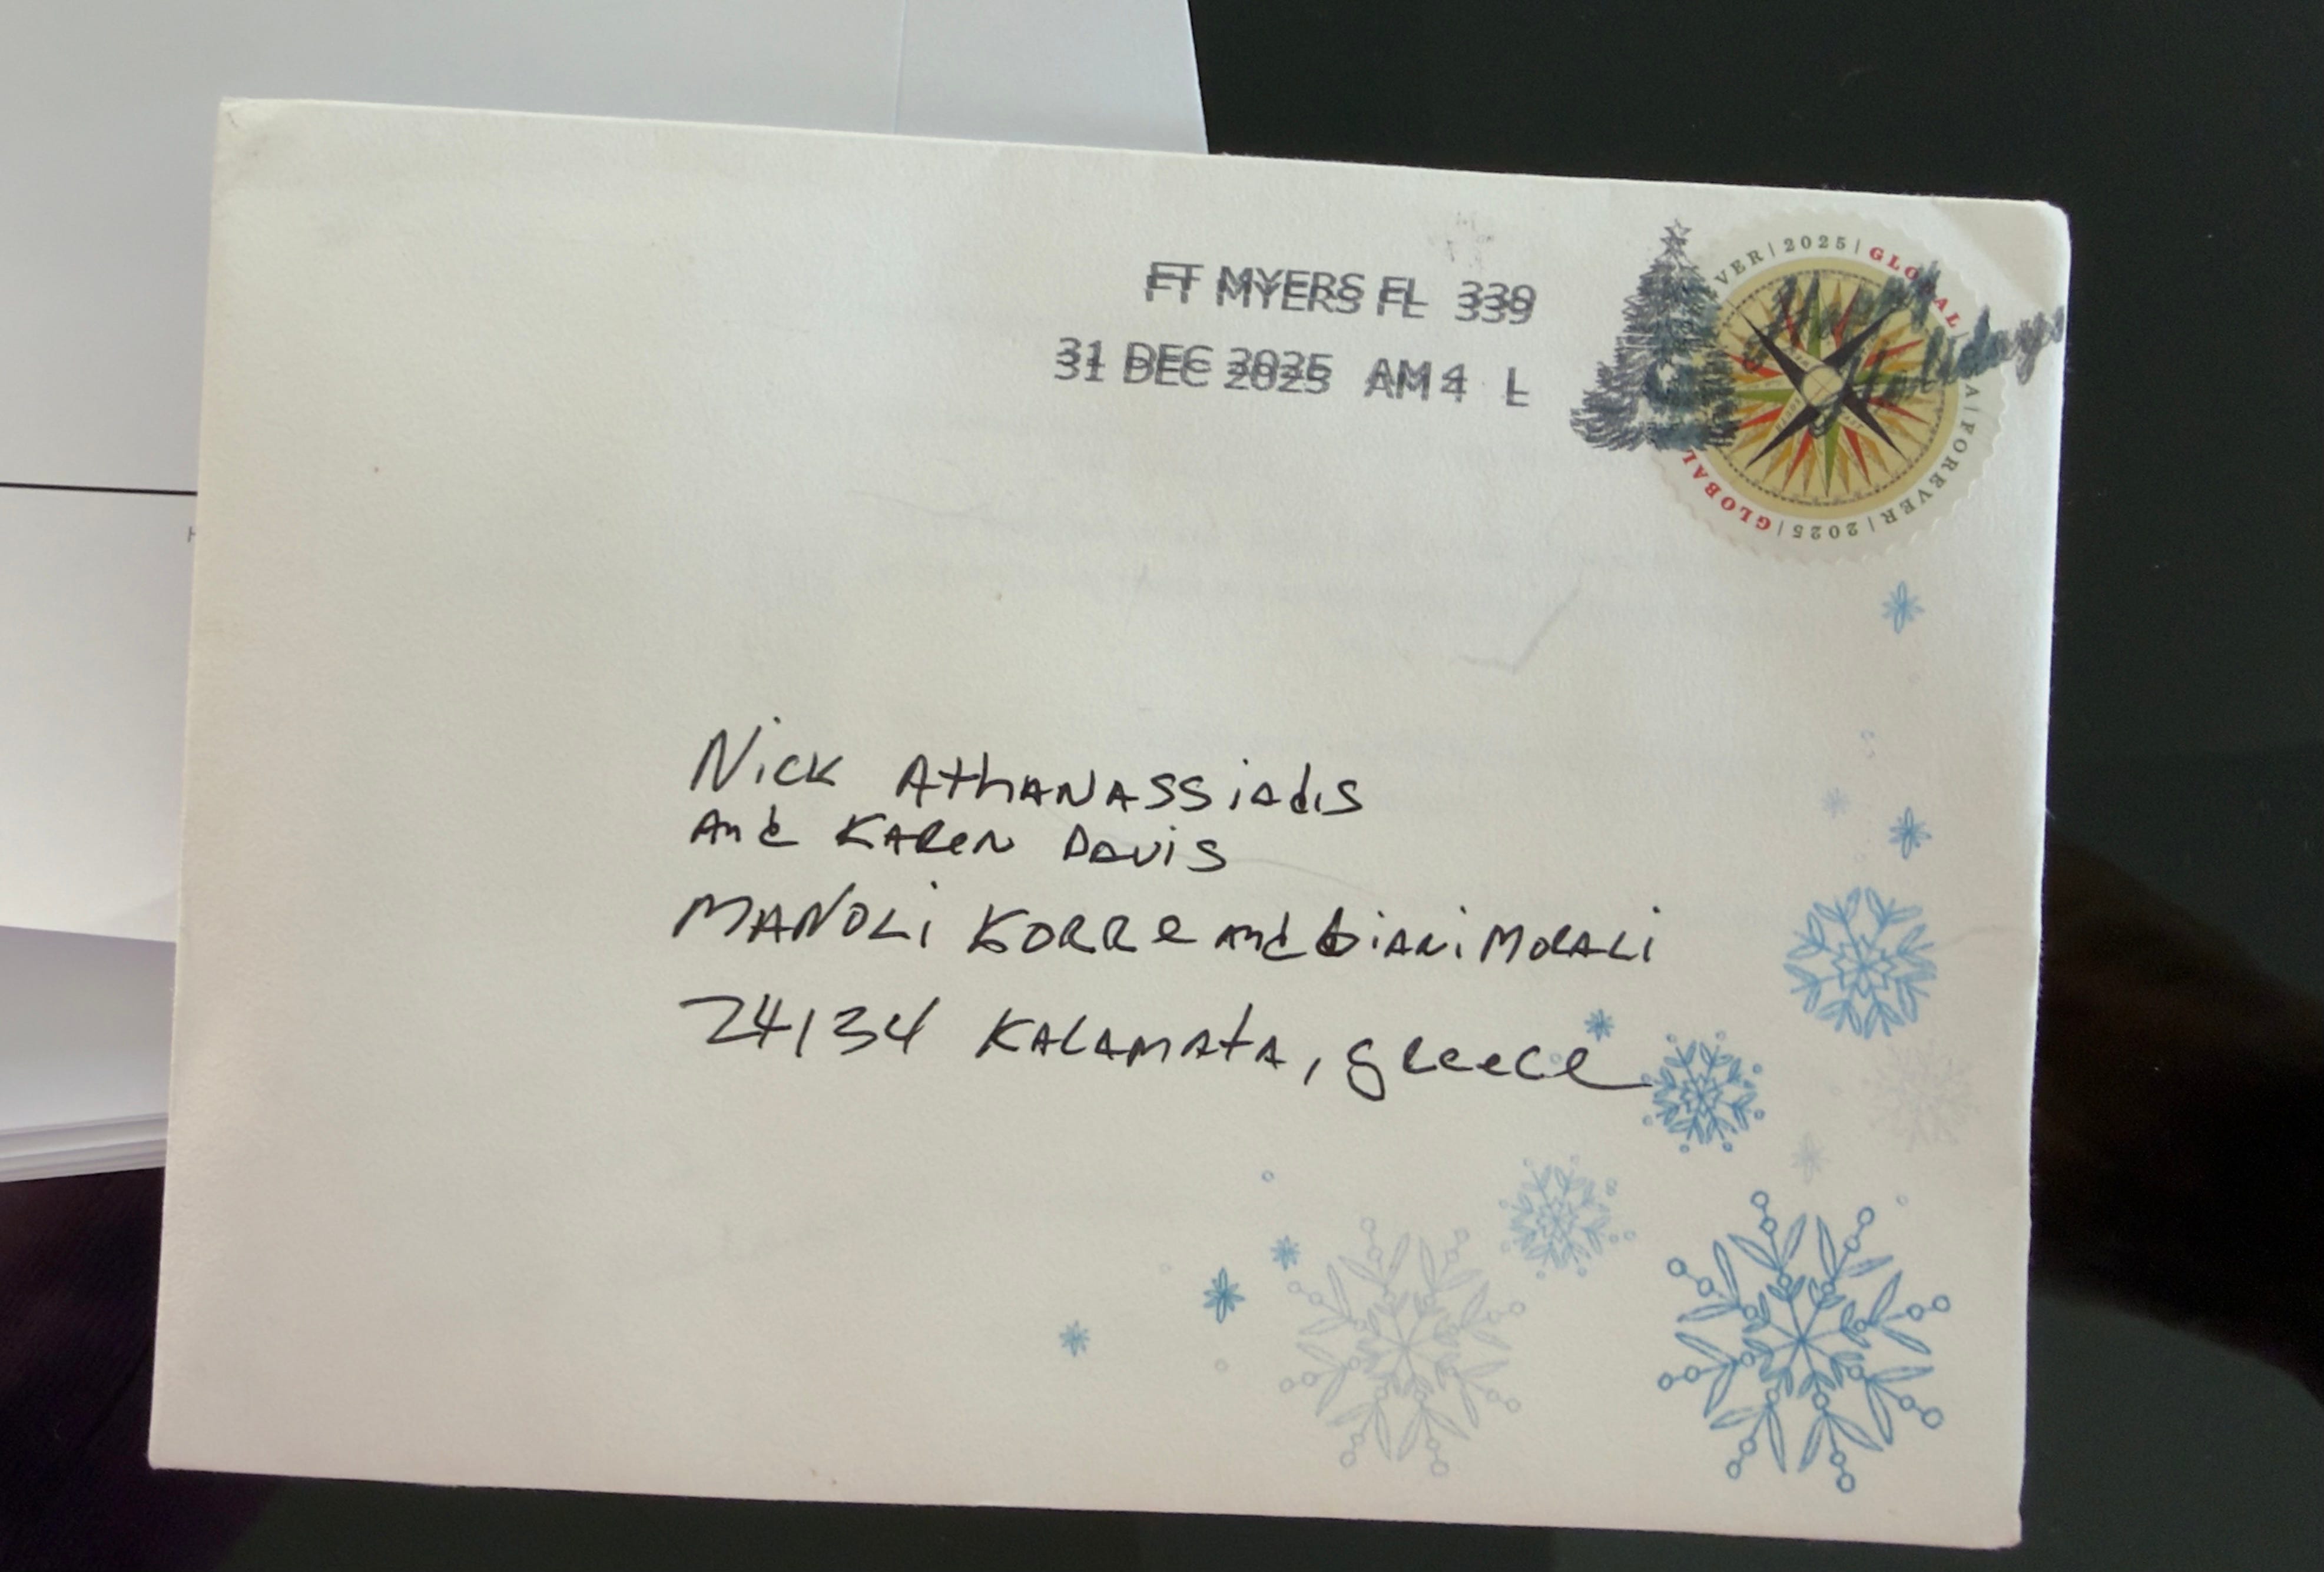 FT MYERS FL 339
31 DEC 2025 AM 4 L
VER | 2025 | GLOBAL
A | FOREVER | 2025 | GLOBAL
Happy
Holidays
Nick Athanassiadis
and Karen Davis
MANOLI KORRE and Giani Morali
24134 Kalamata, Greece
H